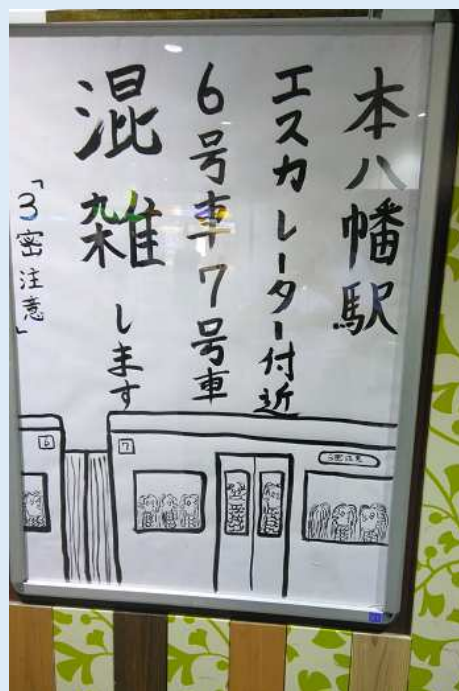 本八幡駅
エスカレーター付近
6号車7号車
混雑します
「3密注意」
6
7
3密注意